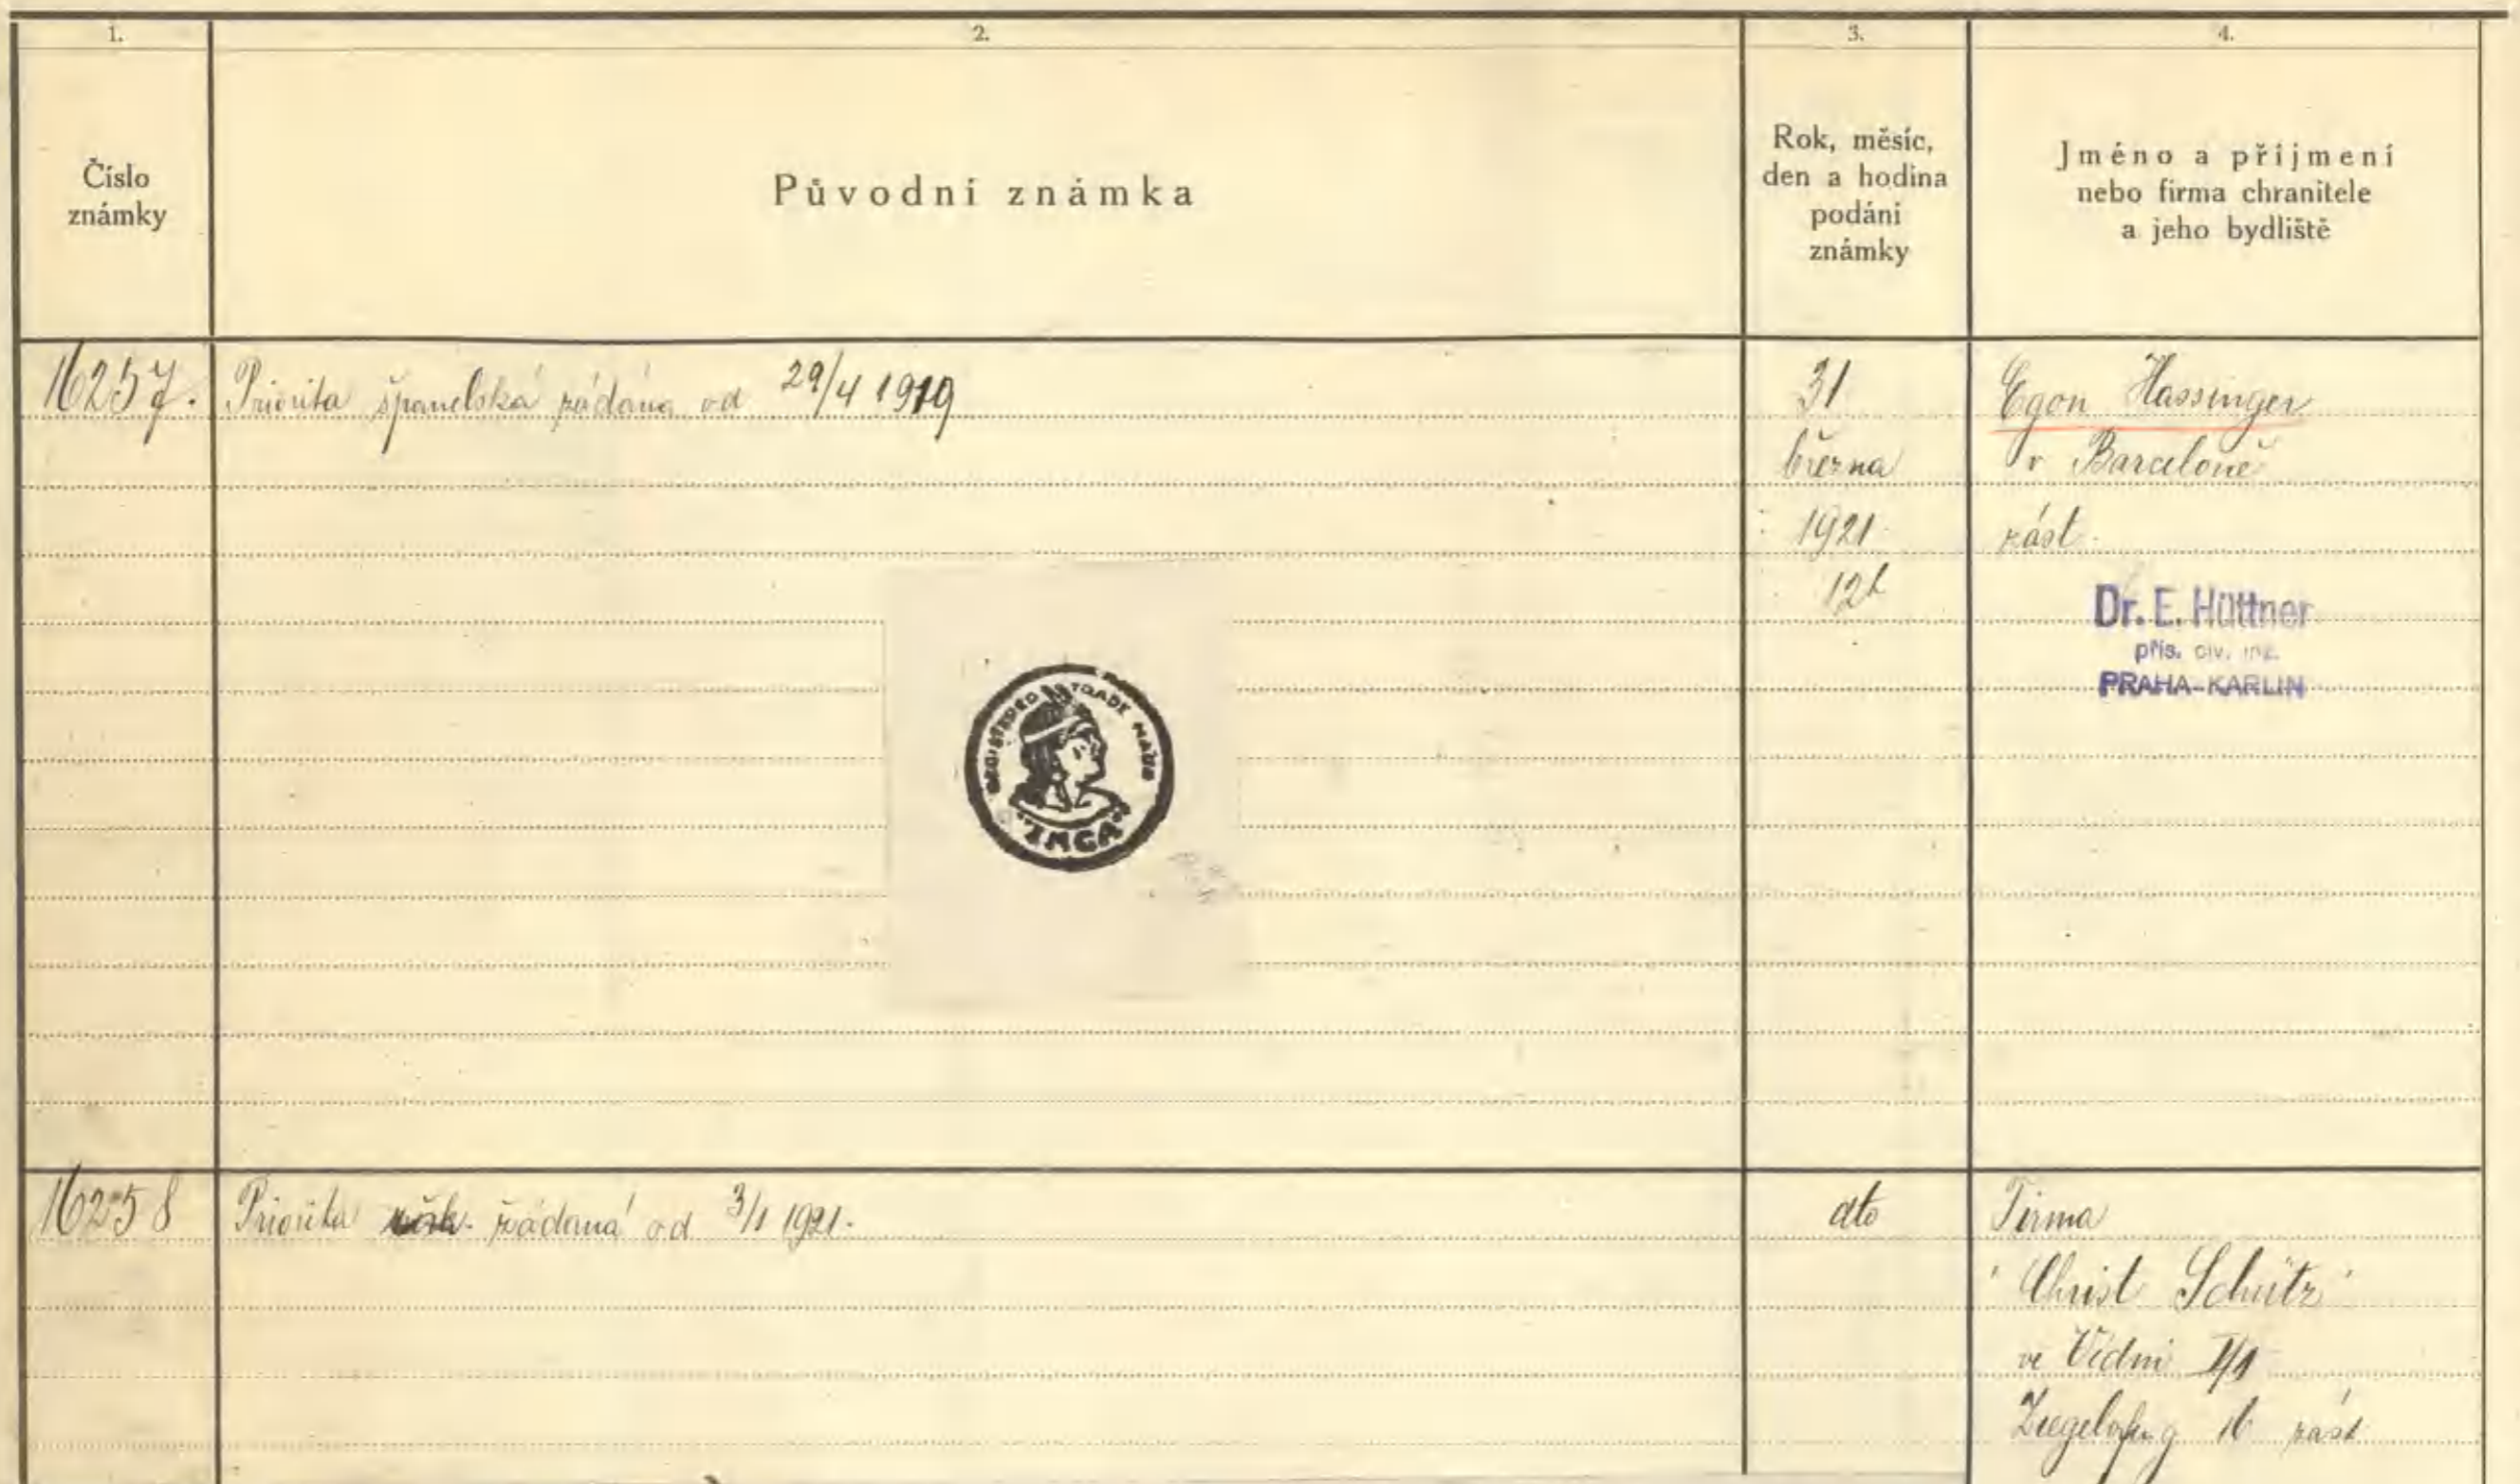 1.
2.
3.
4.
Číslo
známky
Původní známka
Rok, měsíc,
den a hodina
podání
známky
Jméno a příjmení
nebo firma chranitele
a jeho bydliště
16257.
Priorita španělská žádána od 29/4 1919
31
března
1921
12h
Egon Hassinger
v Barceloně
zást.
Dr. E. Hüttner
přis. civ. inž.
PRAHA-KARLIN
REGISTERED TRADE MARK
"INCA"
16258
Priorita žádaná od 3/1 1921.
dto
Firma
"Christ Schütz"
ve Vídni
16 zást